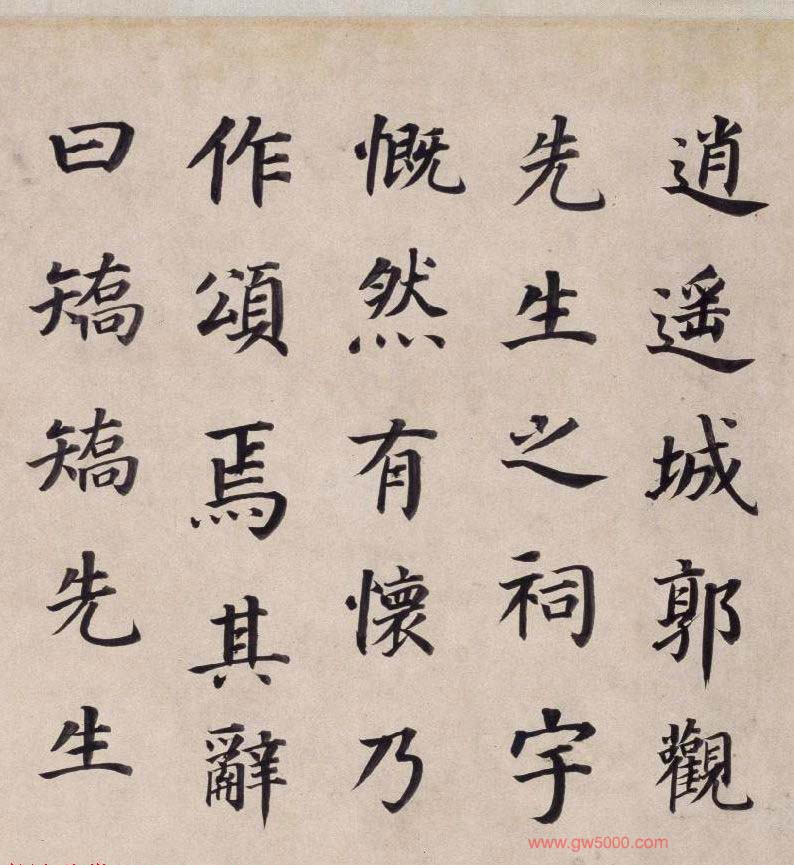 逍遥城郭觀
先生之祠宇
慨然有懷乃
作頌焉其辭
曰矯矯先生
www.gw5000.com